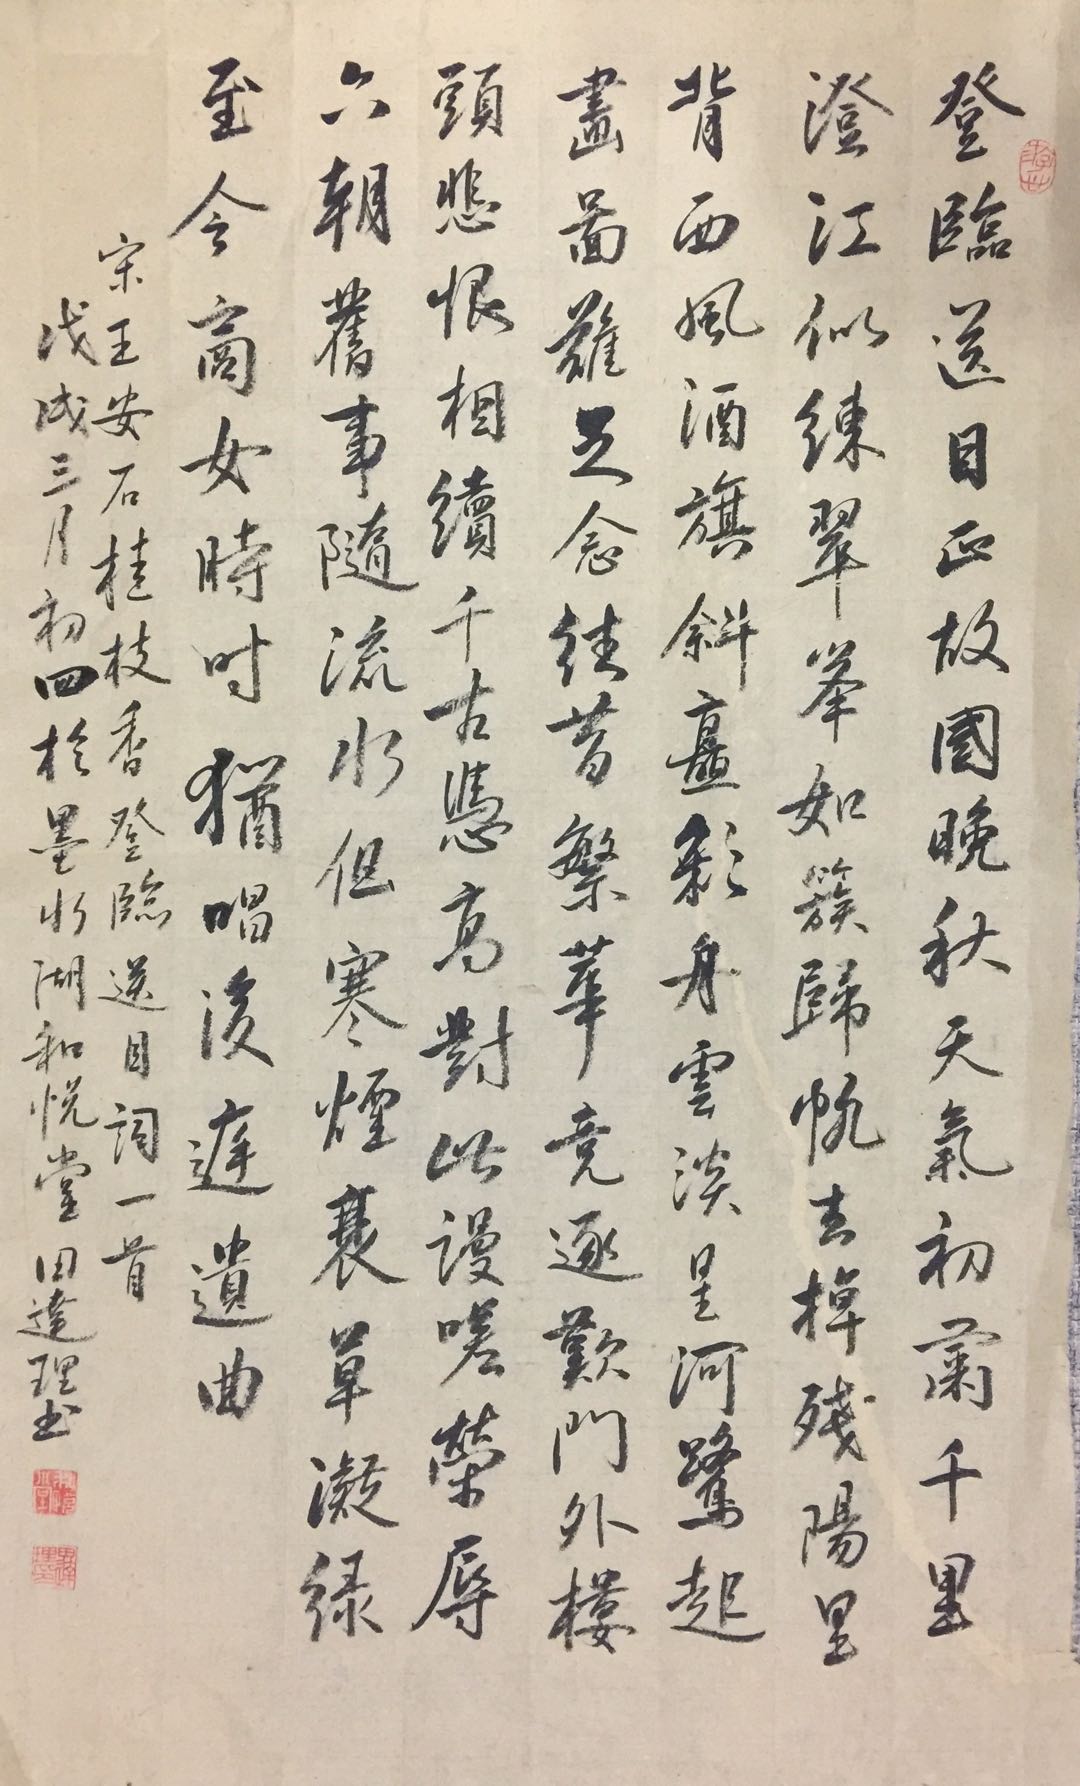 登臨送目正故國晚秋天氣初肅千里
澄江似練翠峯如簇歸帆去棹殘陽里
背西風酒旗斜矗彩舟雲淡星河鷺起
畫圖難足念往昔繁華竞逐歎門外樓
頭悲恨相續千古憑高對此謾嗟榮辱
六朝舊事隨流水但寒煙衰草凝绿
至今商女時时猶唱後庭遺曲
宋王安石桂枝香登臨送目詞一首
戊戌三月初四於墨水湖和悅堂田達理书